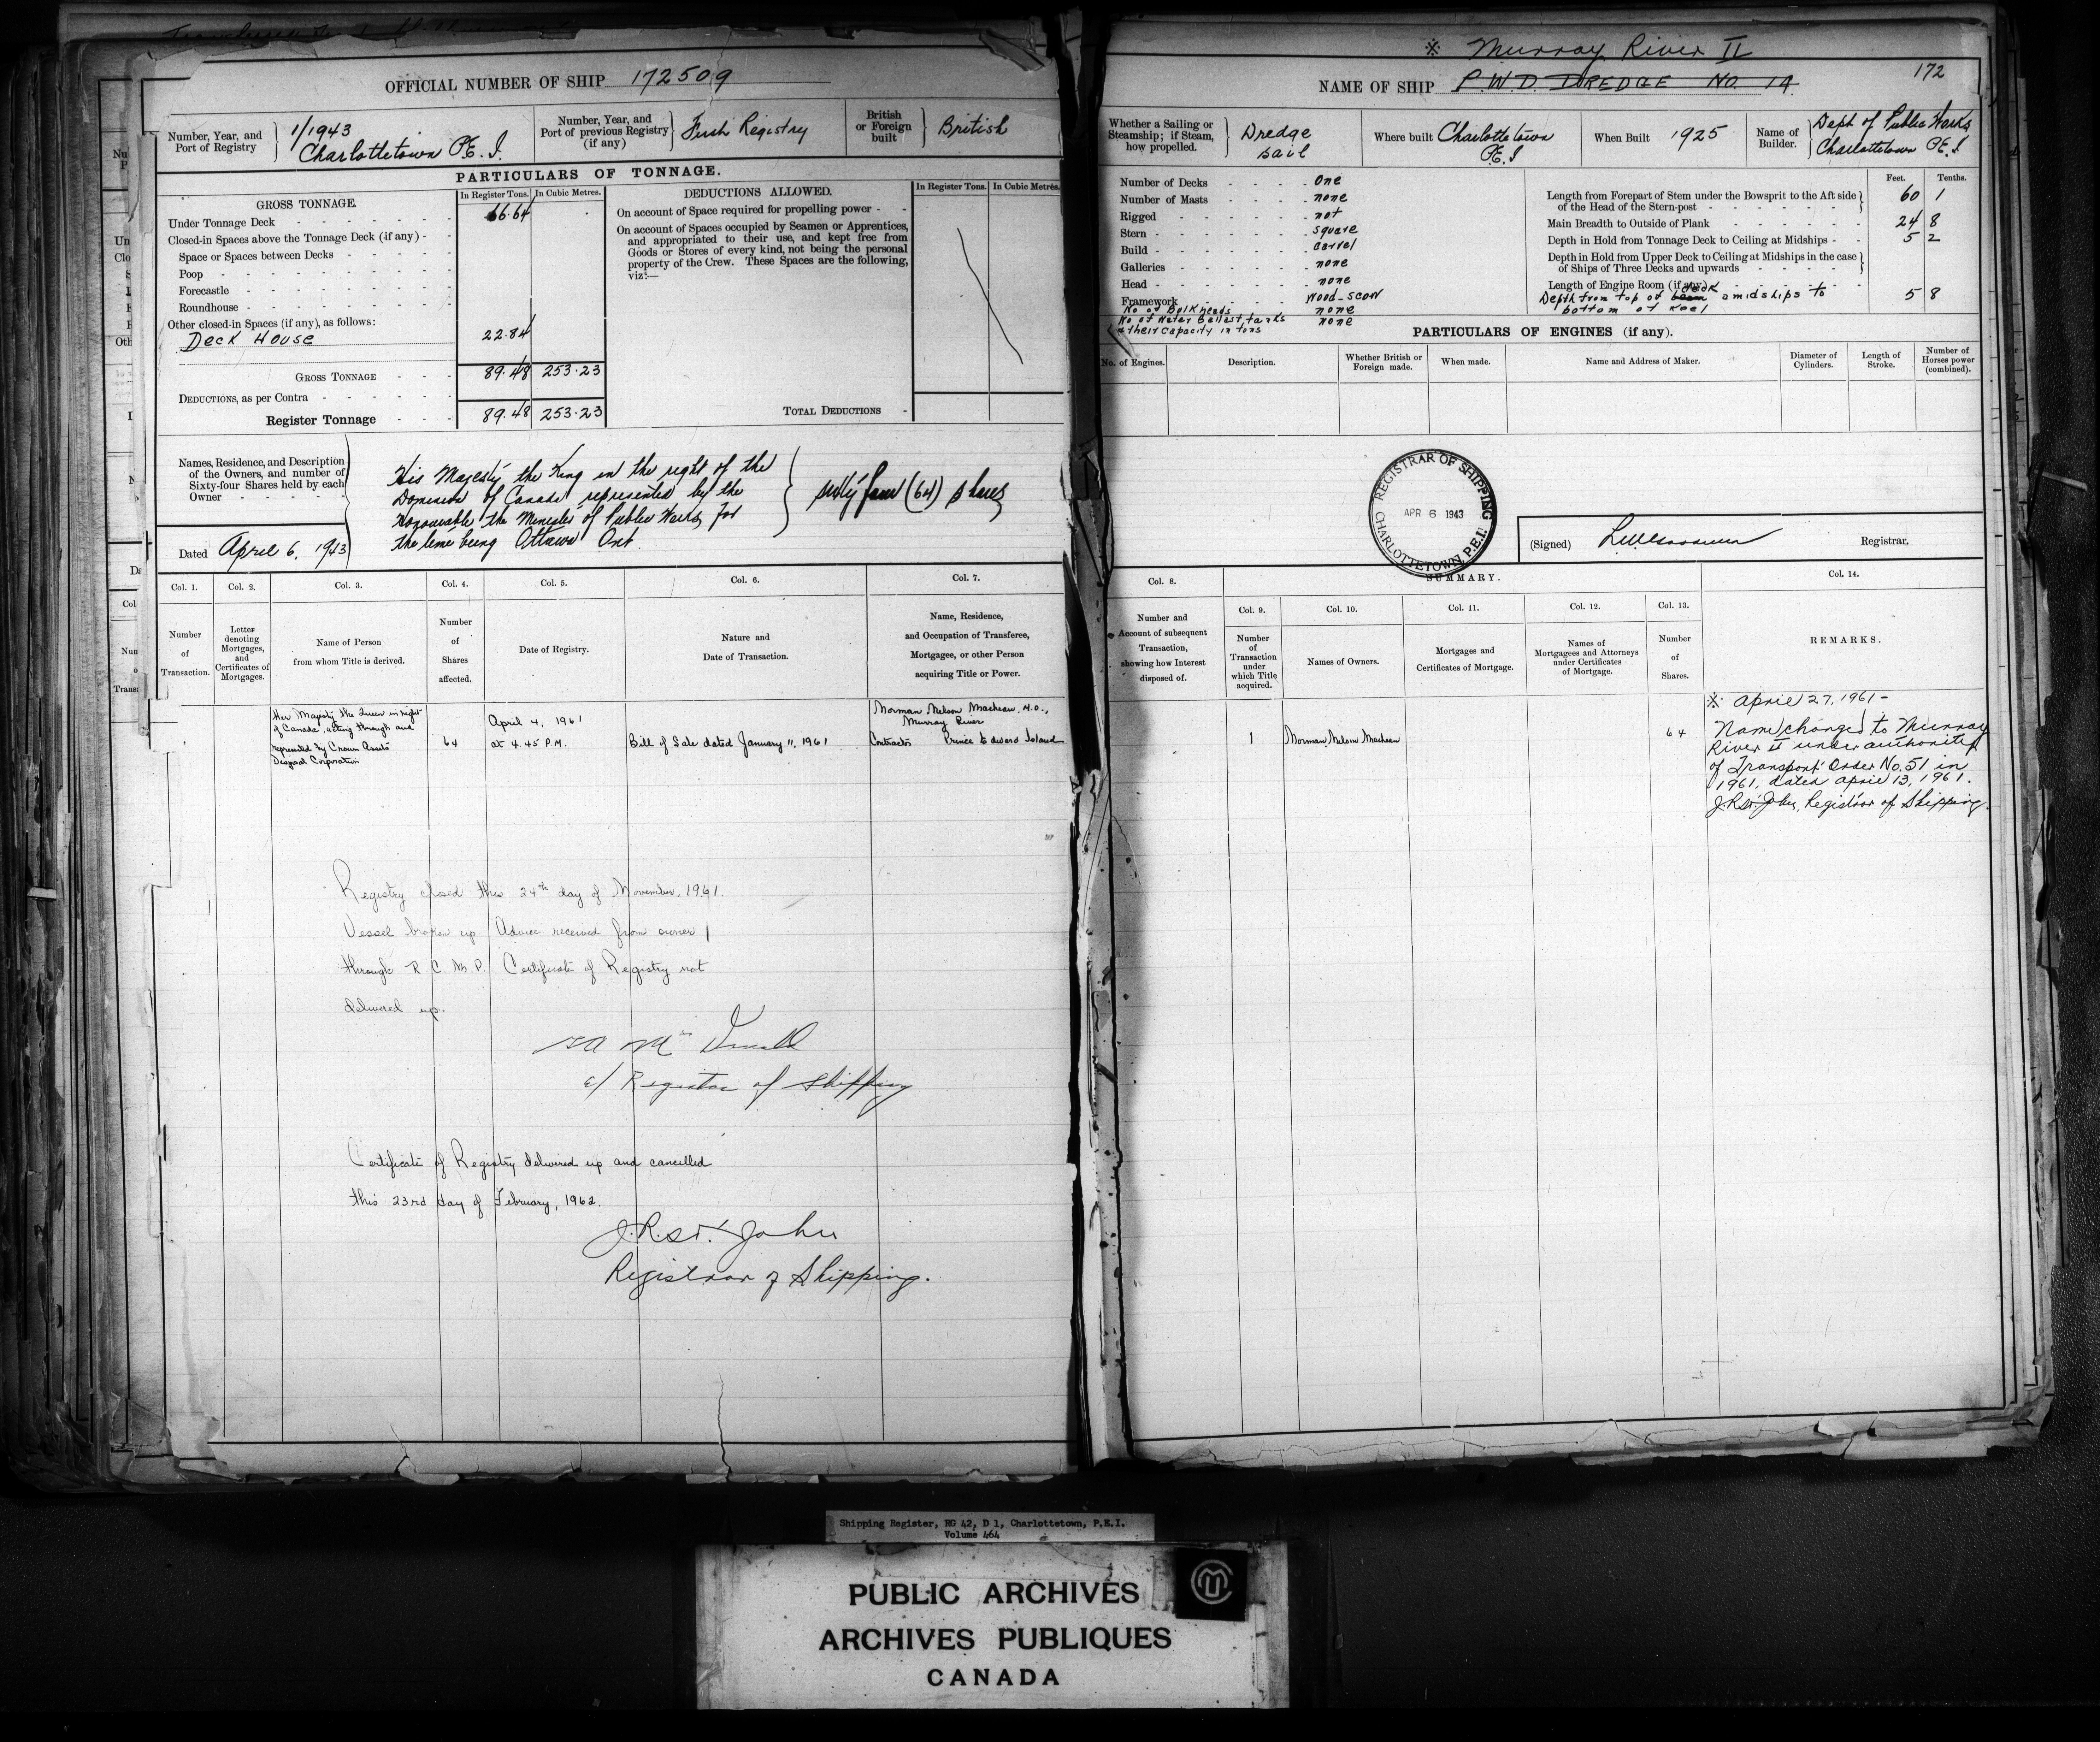 OFFICIAL NUMBER OF SHIP 172509
Number, Year, and Port of Registry
1/1943
Charlottetown P.E.I.
Number, Year, and Port of previous Registry (if any)
First Registry
British or Foreign built
British
PARTICULARS OF TONNAGE.
GROSS TONNAGE.
In Register Tons.
In Cubic Metres.
Under Tonnage Deck 66.64
Closed-in Spaces above the Tonnage Deck (if any)
Space or Spaces between Decks
Poop
Forecastle
Roundhouse
Other closed-in Spaces (if any), as follows:
Deck House 22.84
GROSS TONNAGE 89.48 253.23
DEDUCTIONS, as per Contra
Register Tonnage 89.48 253.23
DEDUCTIONS ALLOWED.
In Register Tons.
In Cubic Metres.
On account of Space required for propelling power
On account of Spaces occupied by Seamen or Apprentices,
and appropriated to their use, and kept free from
Goods or Stores of every kind, not being the personal
property of the Crew. These Spaces are the following,
viz:—
TOTAL DEDUCTIONS
Names, Residence, and Description
of the Owners, and number of
Sixty-four Shares held by each
Owner
His Majesty the King in the right of the
Dominion of Canada represented by the
Honourable the Minister of Public Works for
the time being Ottawa Ont.
sixty four (64) shares
Dated April 6, 1943
Col. 1.
Number of Transaction.
Col. 2.
Letter denoting Mortgages, and Certificates of Mortgages.
Col. 3.
Name of Person from whom Title is derived.
Col. 4.
Number of Shares affected.
Col. 5.
Date of Registry.
Col. 6.
Nature and Date of Transaction.
Col. 7.
Name, Residence, and Occupation of Transferee, Mortgagee, or other Person acquiring Title or Power.
Her Majesty the Queen in right
of Canada, acting through and
represented by Crown Assets
Disposal Corporation
64
April 4, 1961
at 4.45 P.M.
Bill of Sale dated January 11, 1961
Norman Nelson MacLean,
Murray River
Contractor Prince Edward Island
Registry closed this 24th day of November, 1961.
Vessel broken up. Advice received from owner
through R.C.M.P. Certificate of Registry not
delivered up.
Registrar of Shipping
Certificate of Registry delivered up and cancelled
this 23rd day of February, 1962.
J.R. St. John
Registrar of Shipping.
※ Murray River II
172
NAME OF SHIP P.W.D. DREDGE NO. 14.
Whether a Sailing or Steamship; if Steam, how propelled.
Dredge
sail
Where built
Charlottetown
P.E.I
When Built 1925
Name of Builder.
Dept of Public Works
Charlottetown P.E.I
Number of Decks One
Number of Masts none
Rigged not
Stern square
Build carvel
Galleries none
Head none
Framework Wood-scow
No of Bulkheads none
No of Water Ballast tanks none
& their capacity in tons
Feet. Tenths.
Length from Forepart of Stem under the Bowsprit to the Aft side
of the Head of the Stern-post 60 1
Main Breadth to Outside of Plank 24 8
Depth in Hold from Tonnage Deck to Ceiling at Midships 5 2
Depth in Hold from Upper Deck to Ceiling at Midships in the case
of Ships of Three Decks and upwards
Length of Engine Room (if any)
Depth from top of beam deck amidships to
bottom of keel 5 8
PARTICULARS OF ENGINES (if any).
No. of Engines.
Description.
Whether British or Foreign made.
When made.
Name and Address of Maker.
Diameter of Cylinders.
Length of Stroke.
Number of Horses power (combined).
REGISTRAR OF SHIPPING
APR 6 1943
CHARLOTTETOWN, P.E.I.
(Signed)
Registrar.
SUMMARY.
Col. 8.
Number and Account of subsequent Transaction, showing how Interest disposed of.
Col. 9.
Number of Transaction under which Title acquired.
Col. 10.
Names of Owners.
Col. 11.
Mortgages and Certificates of Mortgage.
Col. 12.
Names of Mortgagees and Attorneys under Certificates of Mortgage.
Col. 13.
Number of Shares.
Col. 14.
REMARKS.
1
Norman Nelson MacLean
64
※ April 27, 1961 -
Name changed to Murray
River II under authority
of Transport Order No. 51 in
1961, dated April 13, 1961.
J.R. St. John, Registrar of Shipping.
Shipping Register, RG 42, D 1, Charlottetown, P.E.I.
Volume 464
PUBLIC ARCHIVES
ARCHIVES PUBLIQUES
CANADA